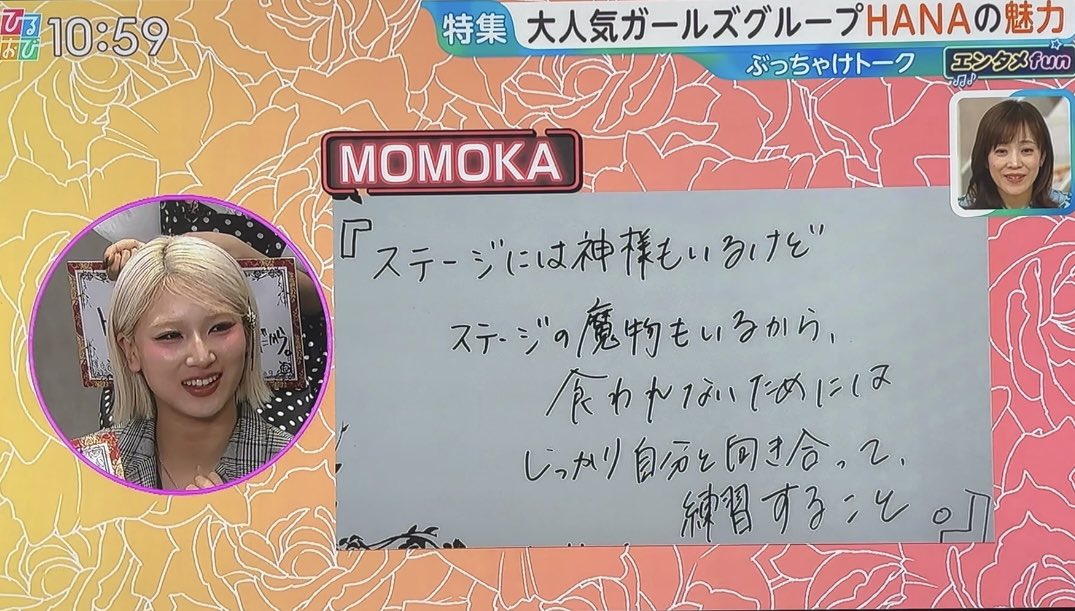 ひるおび 10:59
特集 大人気ガールズグループHANAの魅力
ぶっちゃけトーク エンタメfun
MOMOKA
『ステージには神様もいるけど
ステージの魔物もいるから、
食われないためには
しっかり自分と向き合って、
練習すること。』